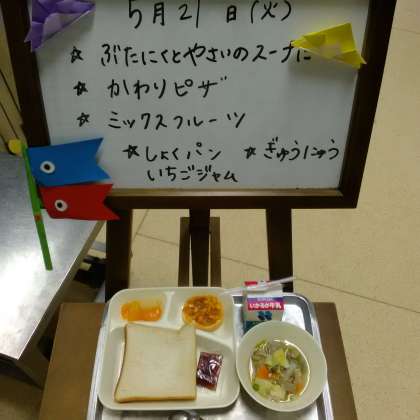 5月21日(火)
☆ ぶたにくとやさいのスープに
☆ かわりピザ
☆ ミックスフルーツ
☆ しょくパン ☆ ぎゅうにゅう
いちごジャム
いかるが牛乳